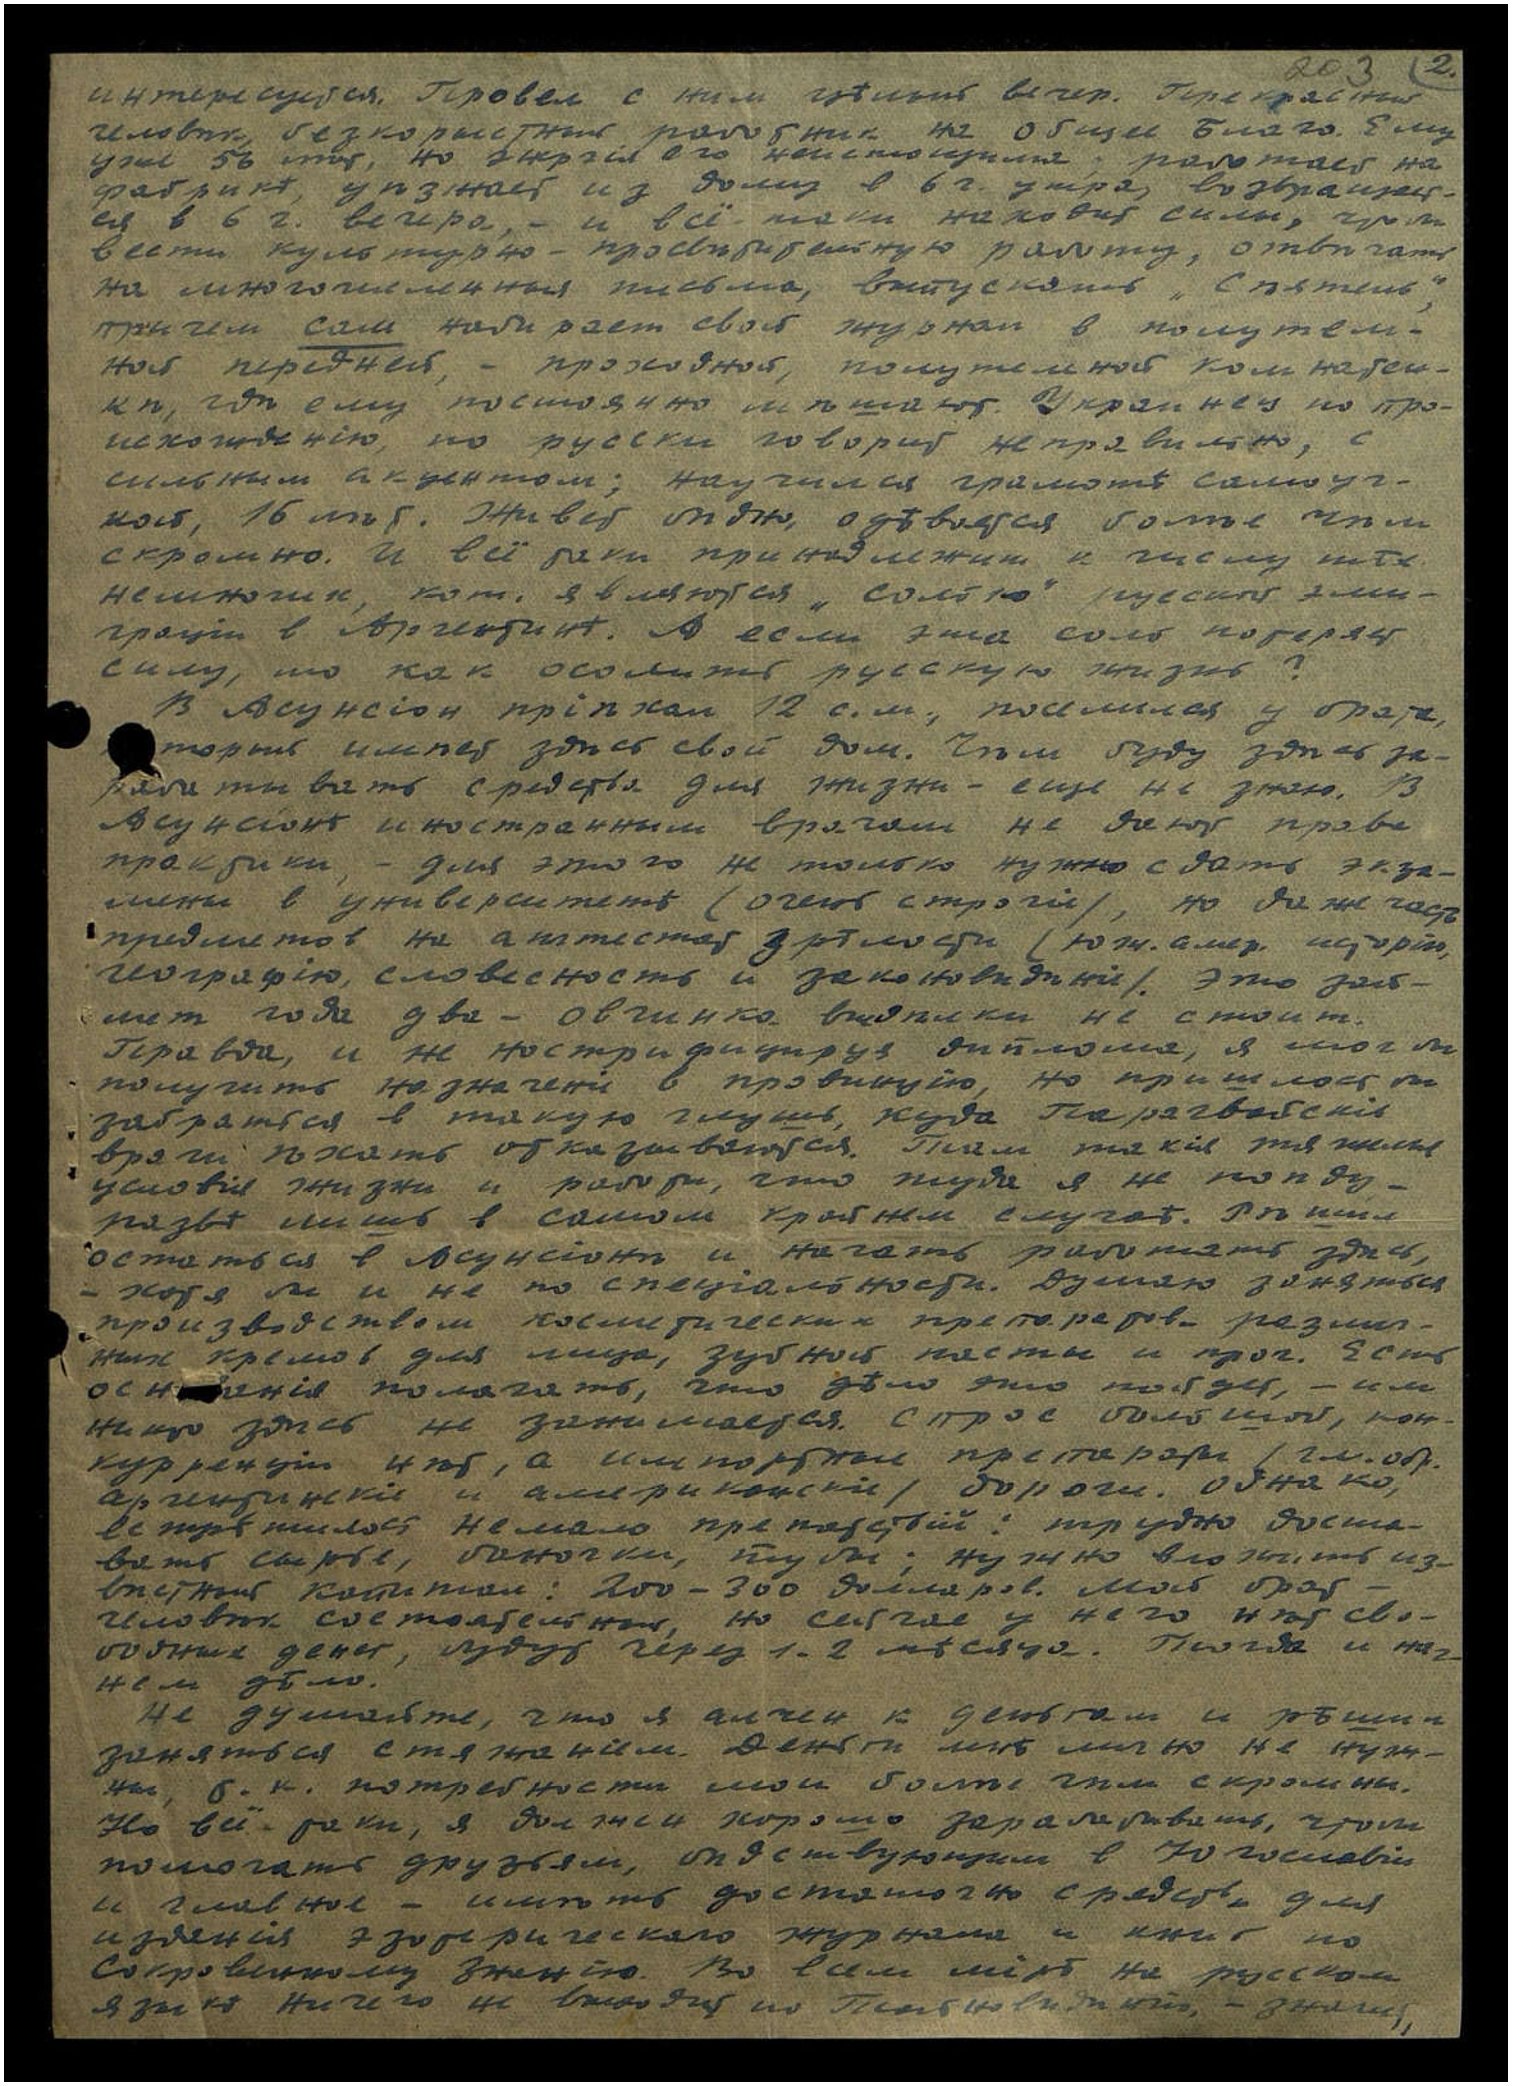 203 2.
интересуется. Провел с ним цѣлый вечер. Прекрасный
человѣк, безкорыстный работник на Общее Благо. Ему
уже 56 лѣт, но энергія его неистощима; работает на
фабрикѣ, уѣзжает из дому в 6 г. утра, возвращает-
ся в 6 г. вечера, - и всё-таки находит силы, чтоб
вести культурно-просвѣтительную работу, отвѣчать
на многочисленныя письма, выпускать „Сѣятель",
причем сам набирает свой журнал в полутем-
ной передней, - проходной, полутемной комнатен-
кѣ, гдѣ ему постоянно мѣшают. Украинец по про-
исхожденію, по русски говорит неправильно, с
сильным акцентом; научился грамотѣ самоуч-
кой, 16 лѣт. Живет бѣдно, одѣвается болѣе чѣм
скромно. И всё таки принадлежит к числу тѣх
немногих, кот. являются „солью" русской эми-
граціи в Аргентинѣ. А если эта соль потеряет
силу, то как осолить русскую жизнь?
В Асунсіон пріѣхал 12 с.м., поселился у брата,
торый имѣет здѣсь свой дом. Чѣм буду здѣсь за-
рабатывать средства для жизни - еще не знаю. В
Асунсіонѣ иностранным врачам не дают права
практики, - для этого не только нужно сдать экза-
мены в университетѣ (очень строгіе), но даже часть
предметов на аттестат зрѣлости (юж. амер. исторію,
географію, словесность и законовѣдѣніе). Это зай-
мет года два - овчинка выдѣлки не стоит.
Правда, и не нострифицируя диплома, я мог бы
получить назначеніе в провинцію, но пришлось бы
забраться в такую глушь, куда Парагвайскіе
врачи ѣхать отказываются. Там такія тяжелыя
условія жизни и работы, что туда я не поѣду, -
развѣ лишь в самом крайнем случаѣ. Рѣшил
остаться в Асунсіонѣ и начать работать здѣсь,
- хотя бы и не по спеціальности. Думаю заняться
производством косметических препаратов - различ-
ных кремов для лица, зубной пасты и проч. Есть
основанія полагать, что дѣло это пойдет, - им
никто здѣсь не занимается. Спрос большой, кон-
курренціи нѣт, а импортные препараты (гл. обр.
аргентинскіе и американскіе) дороги. Однако,
встрѣтилось немало препятствій: трудно доста-
вать сырье, баночки, тубы; нужно вложить из-
вѣстный капитал: 200-300 долларов. Мой брат -
человѣк состоятельный, но сейчас у него нѣт сво-
бодных денег, будут через 1-2 мѣсяца. Тогда и нач-
нем дѣло.
Не думайте, что я алчен к деньгам и рѣшил
заняться стяжаніем. Деньги мнѣ лично не нуж-
ны, т.к. потребности мои болѣе чѣм скромны.
Но всё-таки, я должен хорошо зарабатывать, чтоб
помогать друзьям, бѣдствующим в Югославіи
и главное - имѣть достаточно средств для
изданія эзотерическаго журнала и книг по
Сокровенному Знанію. Во всем мірѣ на русском
языкѣ ничего не выходит по Тайновѣдѣнію, - значит,